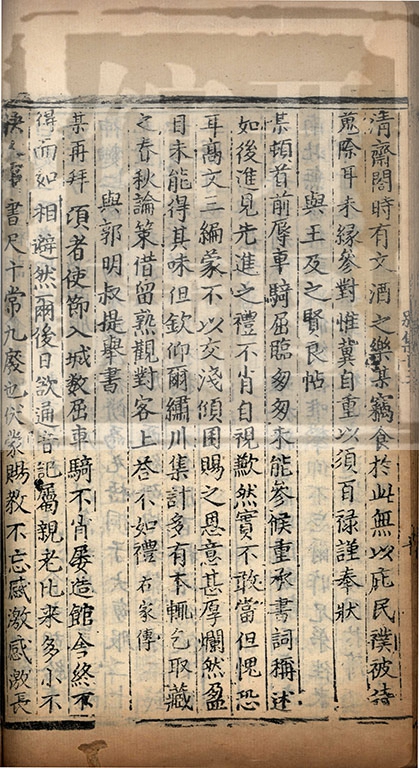 清齋閤時有文酒之樂某竊食於此無以庇民襆被待
遣除耳未緣參對惟冀自重以須百祿謹奉狀
與王及之賢良帖
某頓首前辱車騎屈臨匆匆未能參候重承書詞稱述
如後進見先進之禮不肖自視歉然實不敢當但愧恐
耳高文三編蒙不以交淺傾困賜之恩意甚厚爛然盈
目未能得其味但欽仰爾繡川集計多有本輒乞取藏
之春秋論策借留熟觀對客上荅不如禮 右家傳
與郭明叔提舉書
某再拜頃者使節入城數屈車騎不肖屢造館舍終不
得而如相避然爾後日欲通音記屬親老比來多小不
快 書尺十常九廢也伏蒙賜教不忘感激感激長